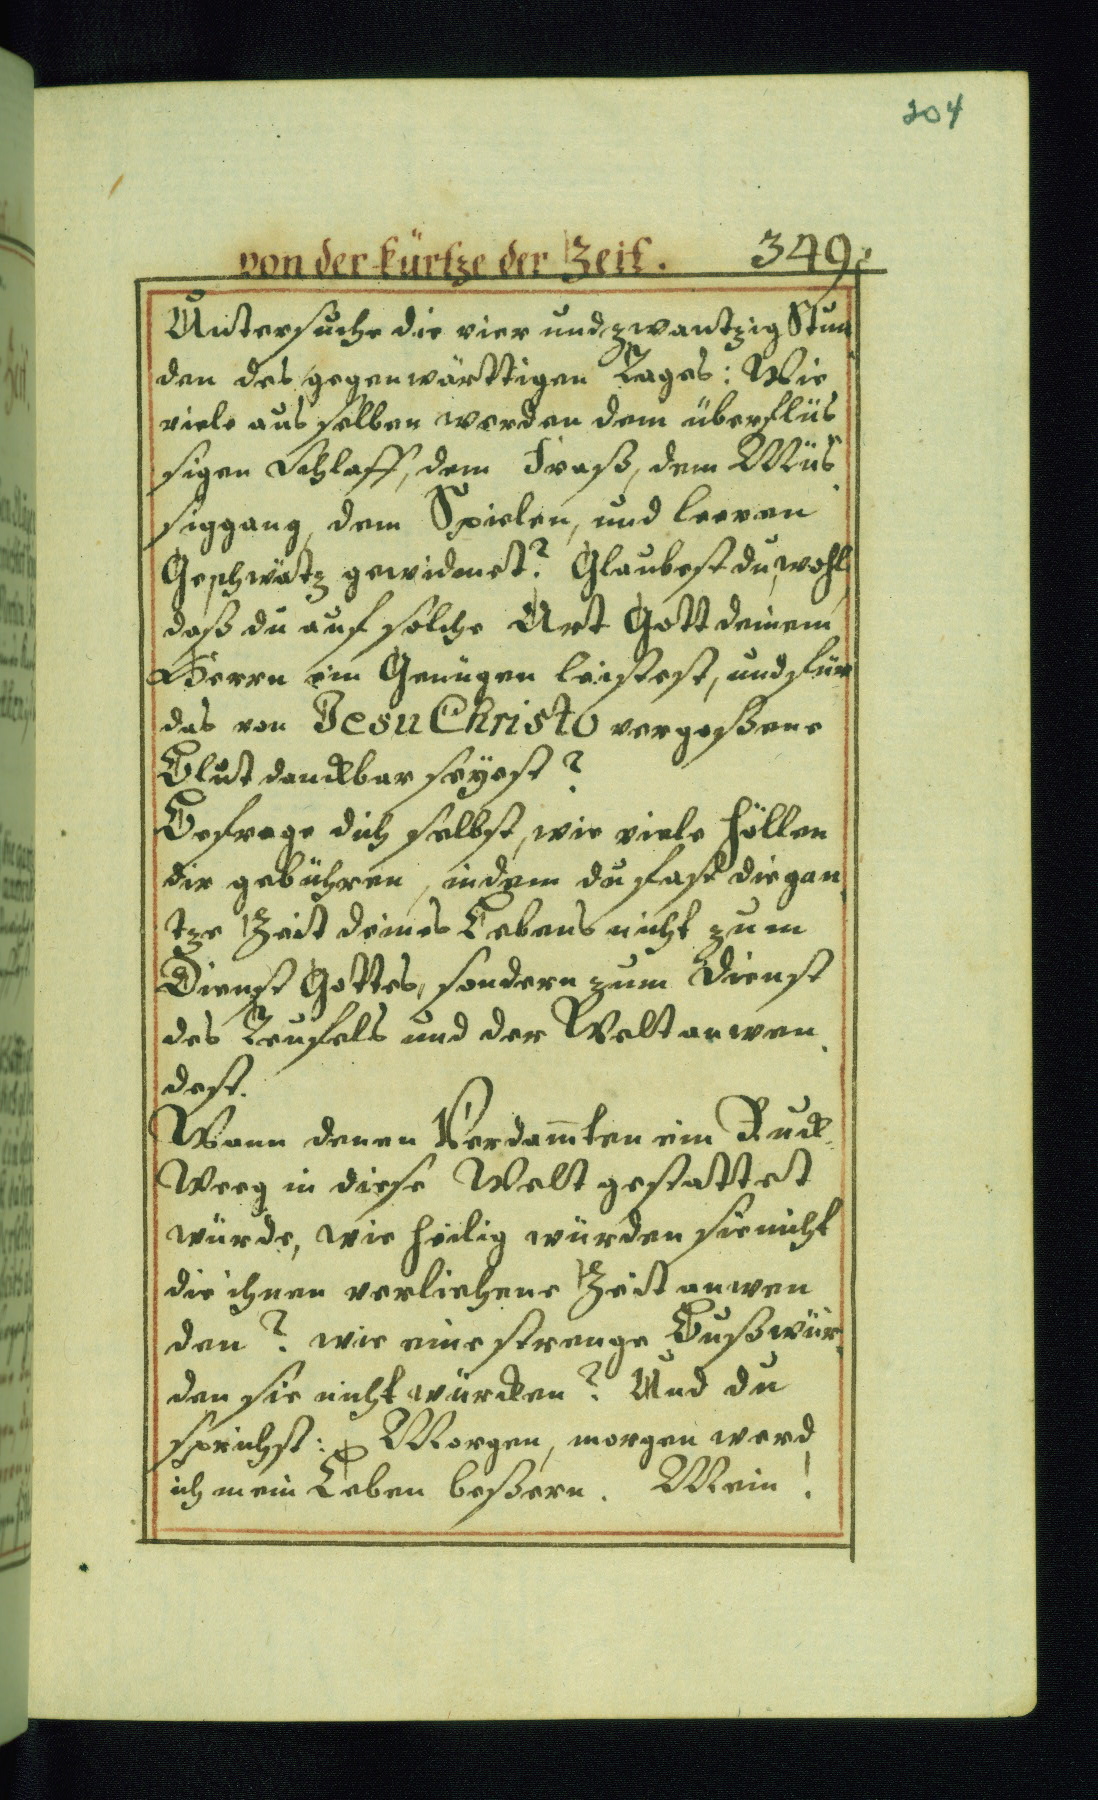 204
von der kürtze der Zeit. 349.
Untersuche die vier und zwantzig Stun
den des gegenwärttigen Tages: Wie
viele aus selben werden dem überflüs
sigen Schlaff, dem Fraß, dem Müs
siggang, dem Spielen, und leeren
Geschwätz gewidmet? Glaubest du wohl
daß du auf solche Art Gott deinem
Herrn ein Genügen leistest, und für
das von Jesu Christo vergoßene
Blut danckbar seyest?
Befrage dich selbst, wie viele Höllen
dir gebühren, indem du fast die gan
tze Zeit deines Lebens nicht zum
Dienst Gottes, sondern zum Dienst
des Teufels und der Welt anwen
dest.
Wann denen Verdam̅ten ein Ruck
Weeg in diese Welt gestattet
würde, wie heilig würden sie nicht
die ihnen verliehene Zeit anwen
den? wie eine strenge Buß wür
den sie nicht würcken? Und du
sprichst: Morgen, morgen werd
ich mein Leben beßern. Mein!